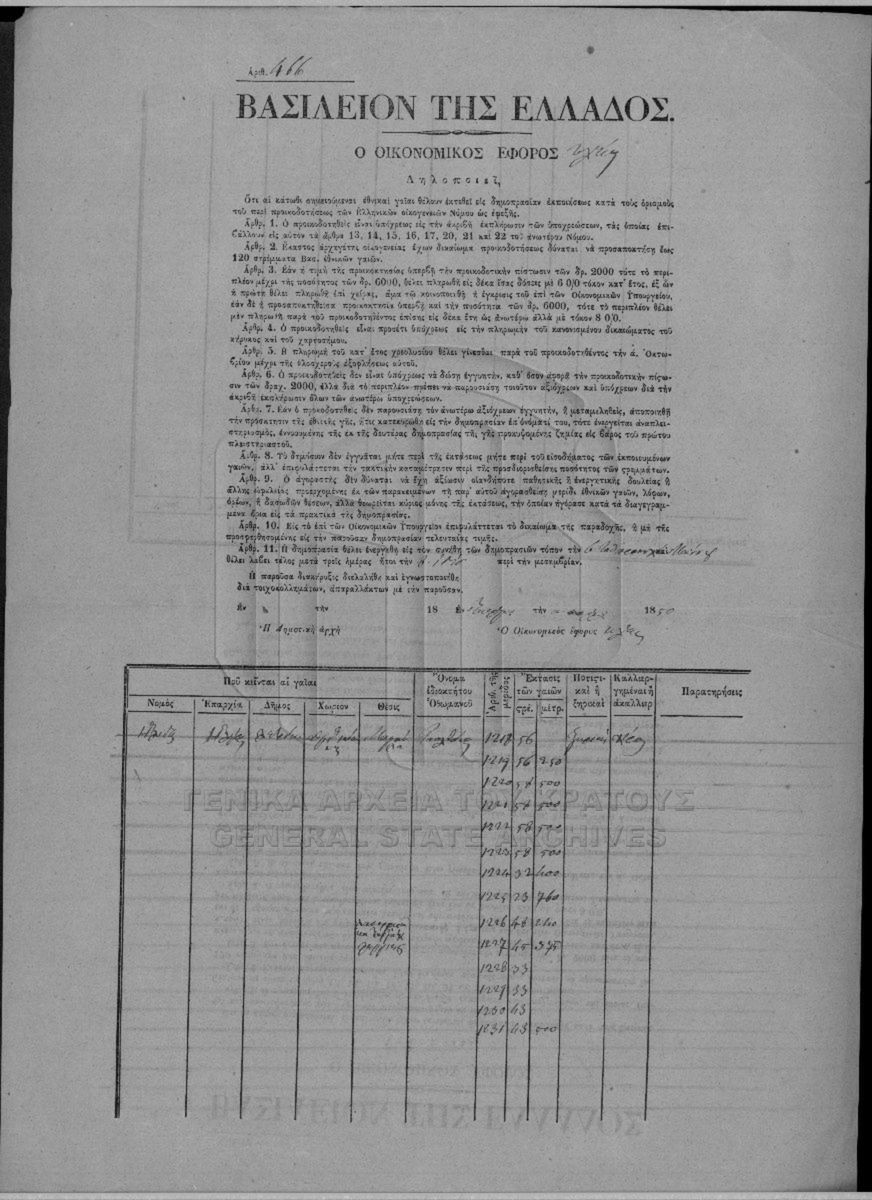 Ἀριθ. 466
ΒΑΣΙΛΕΙΟΝ ΤΗΣ ΕΛΛΑΔΟΣ.
Ο ΟΙΚΟΝΟΜΙΚΟΣ ΕΦΟΡΟΣ
Δηλοποιεῖ,
Ὅτι αἱ κάτωθι σημειούμεναι ἐθνικαὶ γαῖαι θέλουν ἐκτεθεῖ εἰς δημοπρασίαν ἐκποιήσεως κατὰ τοὺς ὁρισμοὺς
τοῦ περὶ προικοδοτήσεως τῶν Ἑλληνικῶν οἰκογενειῶν Νόμου ὡς ἐφεξῆς.
Ἄρθρ. 1. Ὁ προικοδοτηθεὶς εἶναι ὑπόχρεως εἰς τὴν ἀκριβῆ ἐκπλήρωσιν τῶν ὑποχρεώσεων, τὰς ὁποίας ἐπι-
βάλλουν εἰς αὐτὸν τὰ ἄρθρα 13, 14, 15, 16, 17, 20, 21 καὶ 22 τοῦ ἀνωτέρω Νόμου.
Ἄρθρ. 2. Ἕκαστος ἀρχηγέτης οἰκογενείας ἔχων δικαίωμα προικοδοτήσεως δύναται νὰ προσαποκτήσῃ ἕως
120 στρέμματα Βασ. ἐθνικῶν γαιῶν.
Ἄρθρ. 3. Ἐὰν ἡ τιμὴ τῆς προικοκτησίας ὑπερβῇ τὴν προικοδοτικὴν πίστωσιν τῶν δρ. 2000 τότε τὸ περι-
πλέον μέχρι τῆς ποσότητος τῶν δρ. 6000, θέλει πληρωθῆ εἰς δέκα ἴσας δόσεις μὲ 6 0/0 τόκον κατ' ἔτος, ἐξ ὧν
ἡ πρώτη θέλει πληρωθῆ ἐπὶ χεῖρας, ἅμα τῷ κοινοποιηθῇ ἡ ἔγκρισις τοῦ ἐπὶ τῶν Οἰκονομικῶν Ὑπουργείου,
ἐὰν δὲ ἡ προσαποκτηθεῖσα προικοκτησία ὑπερβῇ καὶ τὴν ποσότητα τῶν δρ. 6000, τότε τὸ περιπλέον θέλει
μὲν πληρωθῆ παρὰ τοῦ προικοδοτηθέντος ἐπίσης εἰς δέκα ἔτη ὡς ἀνωτέρω ἀλλὰ μὲ τόκον 8 0/0.
Ἄρθρ. 4. Ὁ προικοδοτηθεὶς εἶναι προσέτι ὑπόχρεως εἰς τὴν πληρωμὴν τοῦ κανονισμένου δικαιώματος τοῦ
κήρυκος καὶ τοῦ χαρτοσήμου.
Ἄρθρ. 5. Ἡ πληρωμὴ τοῦ κατ' ἔτος χρεολυσίου θέλει γίνεσθαι παρὰ τοῦ προικοδοτηθέντος τὴν ά. Ὀκτω-
βρίου μέχρι τῆς ὁλοσχεροῦς ἐξοφλήσεως αὐτοῦ.
Ἄρθρ. 6. Ὁ προικοδοτηθεὶς δὲν εἶναι ὑπόχρεως νὰ δώσῃ ἐγγυητὴν, καθ' ὅσον ἀφορᾷ τὴν προικοδοτικὴν πίστω-
σιν τῶν δραχ. 2000, ἀλλὰ διὰ τὸ περιπλέον πρέπει νὰ παρουσιάσῃ τοιοῦτον ἀξιόχρεων καὶ ὑπόχρεων διὰ τὴν
ἀκριβῆ ἐκπλήρωσιν ὅλων τῶν ἀνωτέρω ὑποχρεώσεων.
Ἄρθρ. 7. Ἐὰν ὁ προικοδοτηθεὶς δὲν παρουσιάσῃ τὸν ἀνωτέρω ἀξιόχρεων ἐγγυητὴν, ἢ μεταμεληθεὶς, ἀποποιηθῇ
τὴν πρόσκτησιν τῆς ἐθνικῆς γῆς, ἥτις κατεκυρώθη εἰς τὴν δημοπρασίαν ἐπ' ὀνόματί του, τότε ἐνεργεῖται ἀναπλει-
στηριασμὸς, ἐννοουμένης τῆς ἐκ τῆς δευτέρας δημοπρασίας τῆς γῆς προκυψομένης ζημίας εἰς βάρος τοῦ πρώτου
πλειστηριαστοῦ.
Ἄρθρ. 8. Τὸ δημόσιον δὲν ἐγγυᾶται μήτε περὶ τῆς ἐκτάσεως μήτε περὶ τοῦ εἰσοδήματος τῶν ἐκποιουμένων
γαιῶν, ἀλλ' ἐπιφυλάττεται τὴν τακτικὴν καταμέτρησιν περὶ τῆς προσδιορισθείσης ποσότητος τῶν στρεμμάτων.
Ἄρθρ. 9. Ὁ ἀγοραστὴς δὲν δύναται νὰ ἔχῃ ἀξίωσιν οἱανδήποτε παθητικῆς ἢ ἐνεργητικῆς δουλείας ἢ
ἄλλης ὠφελείας προερχομένης ἐκ τῶν παρακειμένων τῇ παρ' αὐτοῦ ἀγορασθείσῃ μερίδι ἐθνικῶν γαιῶν, λόφων,
ὀρέων, ἢ δασωδῶν θέσεων, ἀλλὰ θεωρεῖται κύριος μόνης τῆς ἐκτάσεως, τὴν ὁποίαν ἠγόρασε κατὰ τὰ διαγεγραμ-
μένα ὅρια εἰς τὰ πρακτικὰ τῆς δημοπρασίας.
Ἄρθρ. 10. Εἰς τὸ ἐπὶ τῶν Οἰκονομικῶν Ὑπουργεῖον ἐπιφυλάττεται τὸ δικαίωμα τῆς παραδοχῆς, ἢ μὴ τῆς
προσφερθησομένης εἰς τὴν παροῦσαν δημοπρασίαν τελευταίας τιμῆς.
Ἄρθρ. 11. Ἡ δημοπρασία θέλει ἐνεργηθῆ εἰς τὸν συνήθη τῶν δημοπρασιῶν τόπον τὴν
θέλει λάβει τέλος μετὰ τρεῖς ἡμέρας ἤτοι τὴν περὶ τὴν μεσημβρίαν.
Ἡ παροῦσα διακήρυξις διελαλήθη καὶ ἐγνωστοποιήθη
διὰ τοιχοκολλημάτων, ἀπαραλλάκτων μὲ τὴν παροῦσαν.
Ἐν τὴν 18 Ἐν τὴν 1850
Ἡ Δημοτικὴ ἀρχὴ Ὁ Οἰκονομικὸς ἔφορος
Ποῦ κεῖνται αἱ γαῖαι Ὄνομα ἰδιοκτήτου Ὀθωμανοῦ Ἀριθ. τῆς μερίδος Ἔκτασις τῶν γαιῶν Ποτιστικαὶ ἢ ξηρικαὶ Καλλιεργημέναι ἢ ἀκαλλιερ Παρατηρήσεις
Νομὸς Ἐπαρχία Δῆμος Χωρίον Θέσις στρέ. μέτρ.
1218 56
1219 56 250
1220 58 500
1221 58 500
1222 58 500
1223 58 500
1224 32 400
1225 23 760
1226 48 240
1227 45 375
1228 33
1229 33
1230 43
1231 43 500
ΓΕΝΙΚΑ ΑΡΧΕΙΑ ΤΟΥ ΚΡΑΤΟΥΣ
GENERAL STATE ARCHIVES